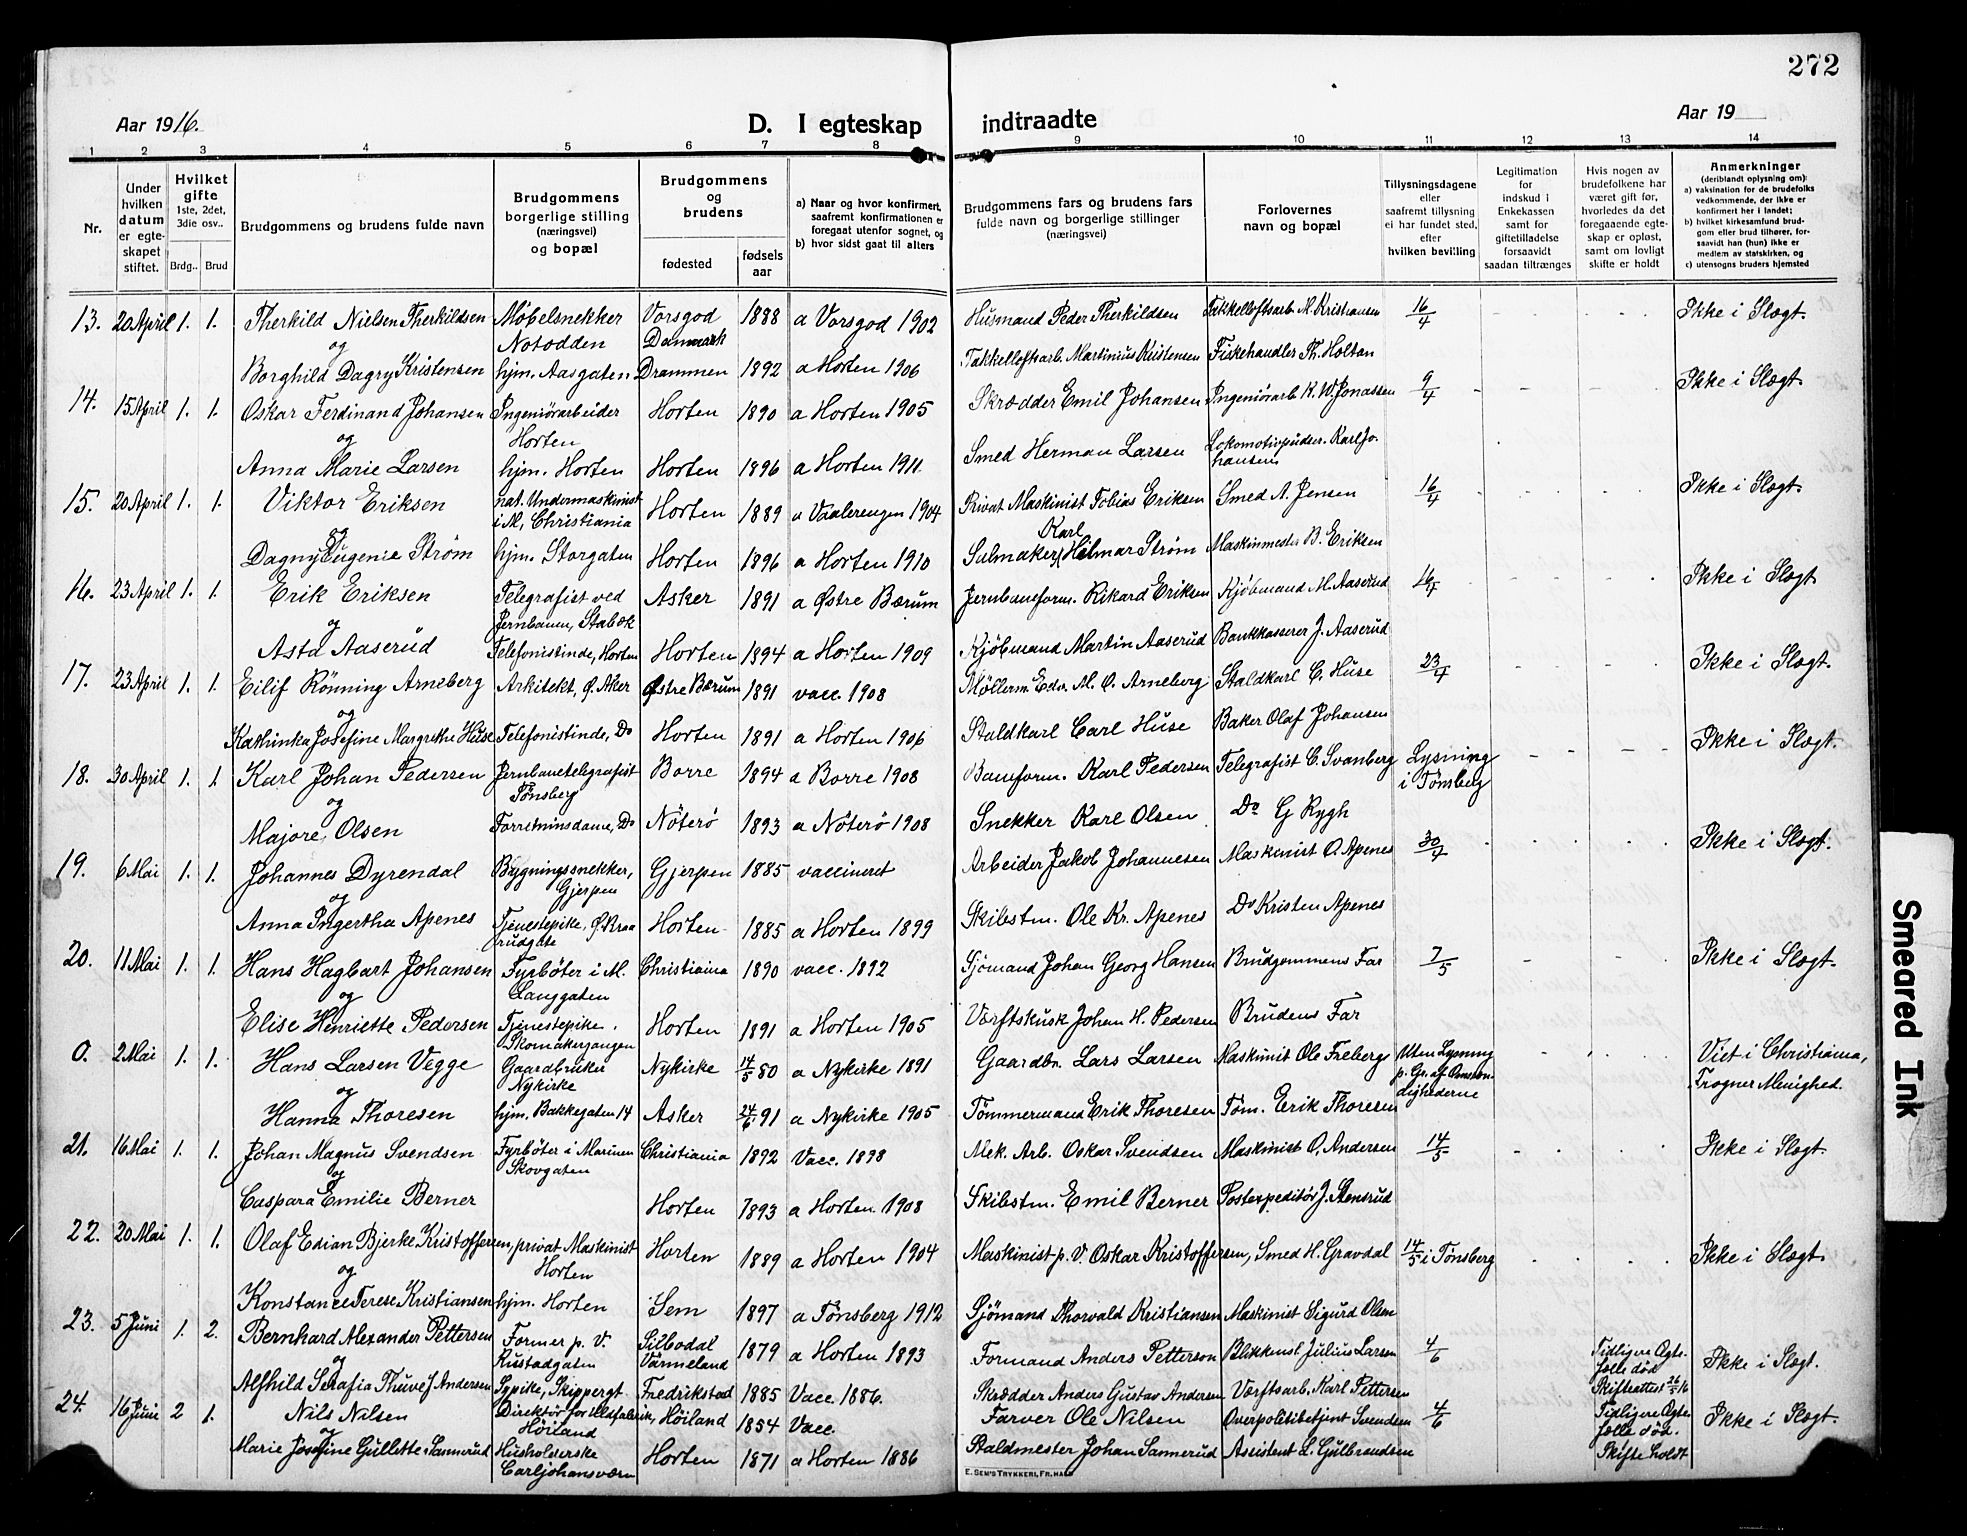 272
Aar 1916.
D. I egteskap indtraadte
Aar 19
1 2 3 4 5 6 7 8 9 10 11 12 13 14
Nr.
Under hvilken datum er egteskapet stiftet.
Hvilket gifte 1ste, 2det, 3die osv..
Brdg.. Brud
Brudgommens og brudens fulde navn
Brudgommens borgerlige stilling (næringsvei) og bopæl
Brudgommens og brudens
fødested
fødsels aar
a) Naar og hvor konfirmert, saafremt konfirmationen er foregaat utenfor sognet, og
b) hvor sidst gaat til alters
Brudgommens fars og brudens fars fulde navn og borgerlige stillinger (næringsvei)
Forlovernes navn og bopæl
Tillysningsdagene eller saafremt tillysning ei har fundet sted, efter hvilken bevilling
Legitimation for indskud i Enkekassen samt for giftetilladelse forsaavidt saadan tiltrænges
Hvis nogen av brudefolkene har været gift før, hvorledes da det foregaaende egteskap er opløst, samt om lovligt skifte er holdt
Anmerkninger (deriblandt oplysning om):
a) vaksination for de brudefolks vedkommende, der ikke er konfirmert her i landet;
b) hvilket kirkesamfund brudgom eller brud tilhører, forsaavidt han (hun) ikke er medlem av statskirken, og
c) utensogns bruders hjemsted
13. 20 April 1. 1. Therkild Nielsen Therkildsen Møbelsnekker Notodden Vorsgod Danmark 1888 a Vorsgod 1902 Husmand Peder Therkildsen Takkelloftsarb. M. Kristiansen 16/4 Ikke i Slægt.
og
Borghild Dagny Kristensen hjm. Aasgaten Drammen 1892 a Horten 1906 Takkelloftsarb. Martinius Kristensen Fiskehandler Th. Holtan
14. 15 April 1. 1. Oskar Ferdinand Johansen Ingeniørarbeider Horten Horten 1890 a Horten 1905 Skrædder Emil Johansen Ingeniørarb. K. W. Jonassen 9/4 Ikke i Slægt.
og
Anna Marie Larsen hjm. Horten Horten 1896 a Horten 1911. Smed Herman Larsen Lokomotivpudser. Karl Johansen
15. 20 April 1. 1. Viktor Eriksen nat. Undermaskinist i M, Christiania Horten 1889 a Vaalerengen 1904 Privat Maskinist Tobias Eriksen Smed A. Jensen 16/4 Ikke i Slægt.
og
Dagny Eugenie Strøm hjm. Storgaten Horten 1896 a Horten 1910 Seilmaker Karl Hilmar Strøm Maskinmester B. Eriksen
16. 23 April 1. 1. Erik Eriksen Telegrafist ved Jernbanen, Stabæk Asker 1891 a Østre Bærum Jernbaneform. Rikard Eriksen Kjøbmand M. Aaserud 16/4 Ikke i Slægt.
og
Asta Aaserud Telefonistinde, Horten Horten 1894 a Horten 1909 Kjøbmand Martin Aaserud Bankkasserer J. Aaserud
17. 23 April 1. 1. Eilif Rönning Arneberg Arkitekt, Ø. Aker Østre Bærum 1891 vacc. 1908 Møllerm. Edv. M. O. Arneberg Staldkarl C. Huse 23/4 Ikke i Slægt.
og
Kathinka Josefine Margrethe Huse Telefonistinde, Do Horten 1891 a Horten 1906 Staldkarl Carl Huse Baker Olaf Johansen
18. 30 April 1. 1. Karl Johan Pedersen Jernbanetelegrafist Tønsberg Borre 1894 a Borre 1908 Baneform. Karl Pedersen Telegrafist C. Svanberg Lysning i Tønsberg Ikke i Slægt.
og
Majore Olsen Forretninsdame, Do Nöterö 1893 a Nöterö 1908 Snekker Karl Olsen Do G Rygh
19. 6 Mai 1. 1. Johannes Dyrendal Bygningssnekker, Gjerpen Gjerpen 1885 vaccineret Arbeider Jakob Johannesen Maskinist O. Apenes 30/4 Ikke i Slægt.
og
Anna Ingertha Apenes Tjenestepike, Ø. Braarudgate Horten 1885 a Horten 1899 Skibstm. Ole Kr. Apenes Do Kristen Apenes
20. 11 Mai 1. 1. Hans Hagbart Johansen Fyrbøter i M. Langgaten Christiania 1890 vacc. 1892 Sjømand Johan Georg Hansen Brudgommens Far 7/5 Ikke i Slægt.
og
Elise Henriette Pedersen Tjenestepike. Skomakergangen Horten 1891 a Horten 1905 Værftskusk Johan H. Pedersen Brudens Far
0. 2 Mai 1. 1. Hans Larsen Vegge Gaardbruker Nykirke Nykirke 14/5 80 a Nykirke 1891 Gaardbr. Lars Larsen Maskinist Ole Freberg Uten Lysning p. Gr. af Omstændighederne Viet i Christiania, Frogner Menighed.
og
Hanna Thoresen hjm. Bakkegaten 14 Asker 24/6 91 a Nykirke 1905 Tömmermand Erik Thoresen Töm. Erik Thoresen
21. 16 Mai 1. 1. Johan Magnus Svendsen Fyrbøter i Marinen Skovgaten Christiania 1892 Vacc. 1898 Mek. Arb. Oskar Svendsen Maskinist O. Andersen 14/5 Ikke i Slægt.
og
Caspara Emilie Berner Horten 1893 a Horten. 1908 Skibstm. Emil Berner Postexpeditör J. Stensrud
22. 20 Mai 1. 1. Olaf Edian Bjerke Kristoffersen, privat Maskinist Horten Horten 1889 a Horten 1904 Maskinist p. V. Oskar Kristoffersen, Smed H. Gravdal 14/5 i Tønsberg Ikke i Slægt.
og
Konstance Terese Kristiansen hjm. Horten Sem 1897 a Tønsberg 1912 Sjömand Thorvald Kristiansen Maskinist Sigurd Olsen
23. 5 Juni 1. 2. Bernhard Alexander Pettersen Former p. V. Rustadgaten Silbodal Värmeland 1879 a Horten 1893 Formand Anders Petterson Blikkensl. Julius Larsen 4/6 Tidligere Ægtefælle død Skifteattest 26/5 16 Ikke i Slægt.
og
Alfhild Serafia Thuve f. Andersen Sypike, Skippergt Fredrikstad 1885 Vacc. 1886. Skrædder Anders Gustav Andersen Værftsarb. Karl Pettersen
24. 16 Juni 2 1. Nils Nilsen Direktør for Uldfabrik, Höiland Höiland 1854 Vacc. Farver Ole Nilsen Overpolitibetjent Svendsen 4/6 Tidligere Ægtefælle død. Skifte holdt Ikke i Slægt.
og
Marie Josefine Gullette Sannerud Husholderske Carljohansværn Horten 1871 a Horten 1886 Staldmester Johan Sannerud Assistent L. Gulbrandsen
E. SEM'S TRYKKERI, FR.HALD
Smeared Ink